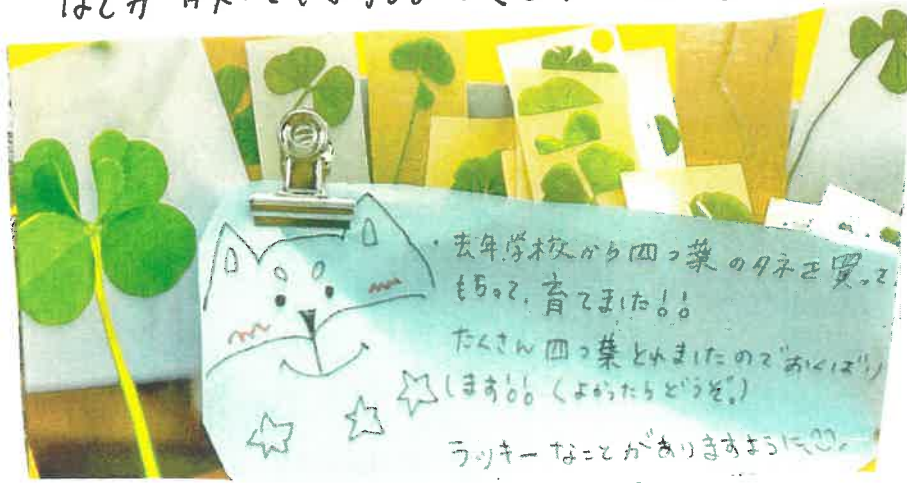 去年学校から四つ葉のタネを買って
もらって、育てました!!
たくさん四つ葉とれましたのでおくばり
します!!(よかったらどうぞ。)
ラッキーなことがありますように